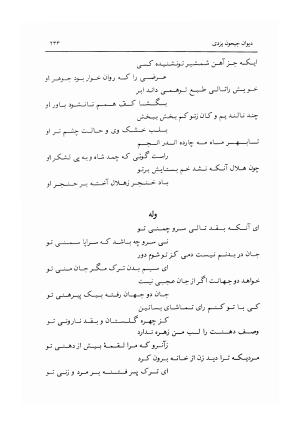 دیوان جیحون یزدی
۲۳۴
ایکه جز آهن شمشیر تونشنیده کسی
عرضی را که روان خوار بود جوهر او
خویش راثالی طبع توهمی داند ابر
بگشا کف همم تانشود یاور او
چند نالند یم و کان زتو کم بخش ببخش
بلب خشک وی و حالت چشم تر او
تابهر ماه مه چارده اندر انجم
راست گوئی که چمد شاه و به پی لشکر او
چون هلال آنکه نشد خم بستایش برتو
باد خنجر زهلال آخته بر حنجر او
وله
ای آنکه بقد تالی سرو چمنی تو
نی سرو چه باشد که سراپا سمنی تو
جان در بدنم نیست دمی کز توشوم دور
ای سیم بدن ترک مگر جان منی تو
خواهد دوجهانت اگر از جان عجبی نیست
جان دو جهان رفته بیک پیرهنی تو
کی با تو کنم رای تماشای بساتین
کز چهره گلستان و بقد نارونی تو
وصف دهنت را لب من زهره ندارد
زآنرو که مرا لقمهٔ بیش از دهنی تو
مردیکه ترا دید زن از خانه برون کرد
ای ترک پسر فتنه بر مرد و زنی تو